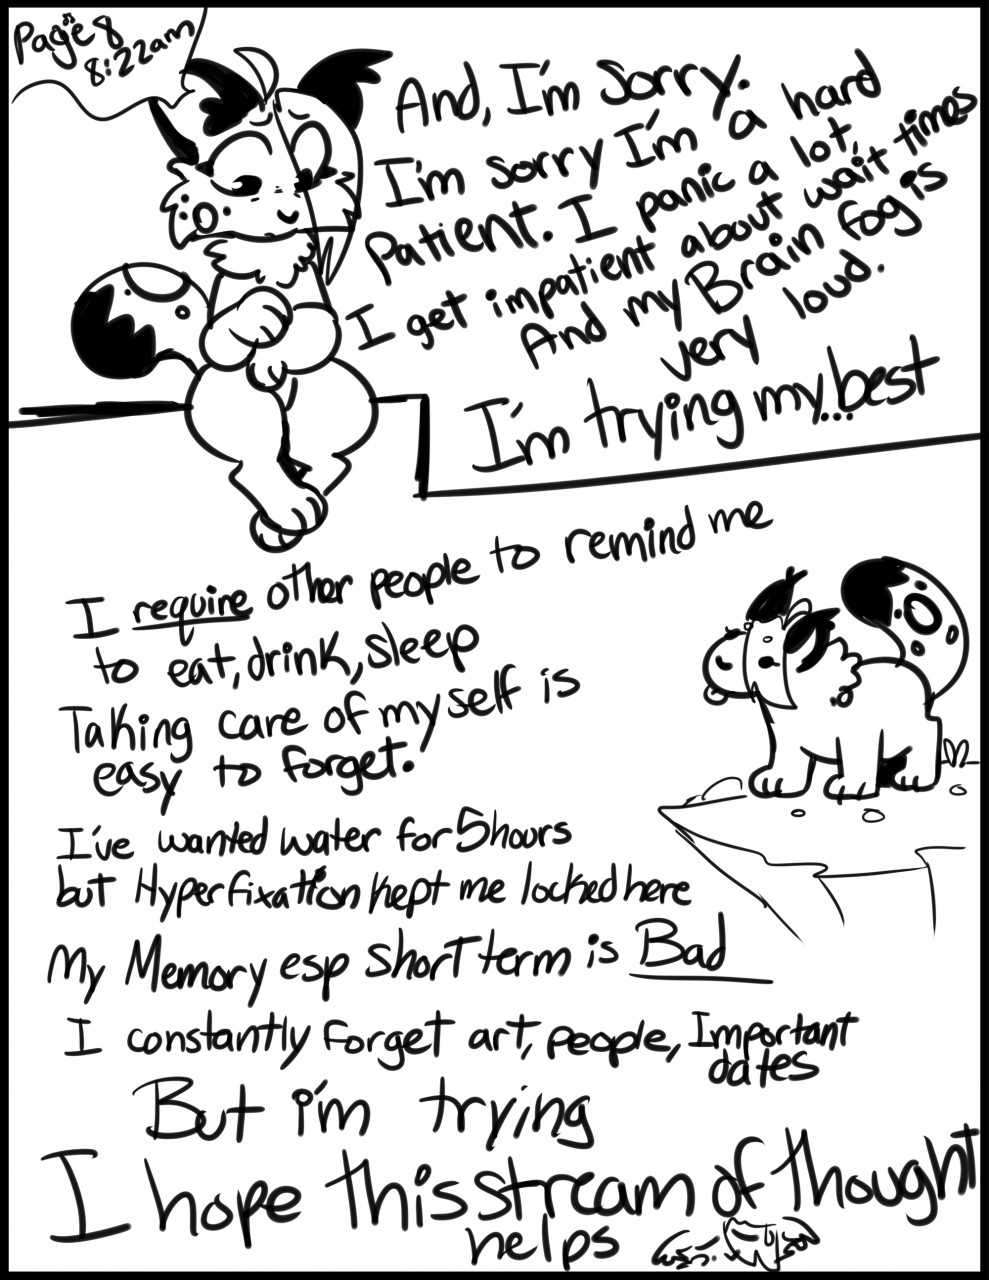 Page 8
8:22am
And, I'm Sorry.
I'm sorry I'm a hard
Patient. I panic a lot,
I get impatient about wait times
And my Brain fog is
very loud.
I'm trying my...best
I require other people to remind me
to eat, drink, sleep
Taking care of myself is
easy to forget.
I've wanted water for 5 hours
but Hyperfixation kept me locked here
My Memory esp short term is Bad
I constantly forget art, people, Important
dates
But i'm trying
I hope this stream of thought
helps